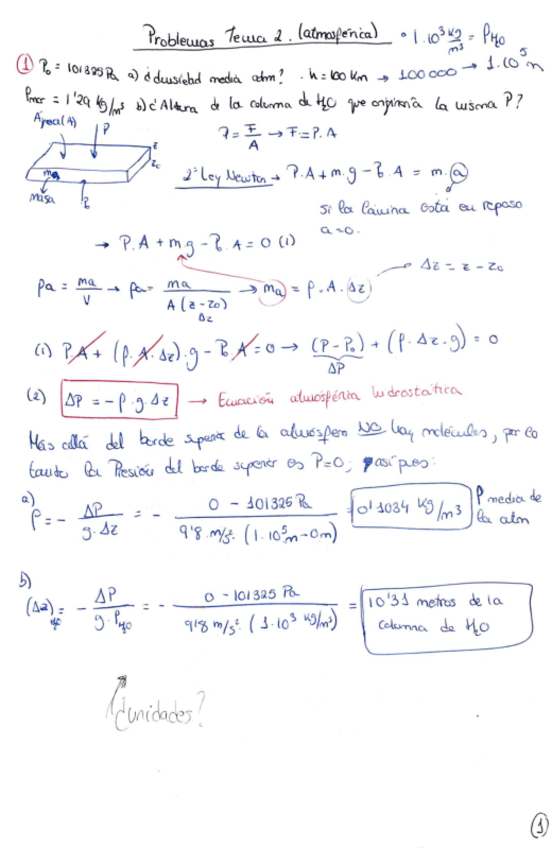 Problemas Tema 2. (atmosférica) • 1·10³ kg/m³ = ρH₂O
① P₀ = 101325 Pa a) ¿densidad media atm? . h = 100 km → 100000 → 1·10⁵ m
ρmar = 1'29 kg/m³ b) ¿Altura de la columna de H₂O que ejerciera la misma P?
Área (A) P
z
z₀
ma
masa P₀
P = F/A → F = P·A
2ª Ley Newton → P·A + m·g - P₀·A = m·a
si la lámina está en reposo
a=0.
→ P·A + mg - P₀·A = 0 (1)
ρa = ma/V → ρa = ma/A(z-z₀) → ma = ρ·A·Δz Δz = z - z₀
Δz
(1) P·A + (ρ·A·Δz)·g - P₀·A = 0 → (P-P₀) + (ρ·Δz·g) = 0
ΔP
(2) ΔP = -ρ·g·Δz → Ecuación atmosférica hidrostática
Más allá del borde superior de la atmósfera NO hay moléculas, por lo
tanto la Presión del borde superior es P=0, así pues:
a) ρ = - ΔP/g·Δz = - 0 - 101325 Pa/9'8 m/s²·(1·10⁵m - 0m) = 0'1034 kg/m³ ρ media de la atm
b) (Δz)H₂O = - ΔP/g·ρH₂O = - 0 - 101325 Pa/9'8 m/s²·(1·10³ kg/m³) = 10'33 metros de la columna de H₂O
¿unidades?
①